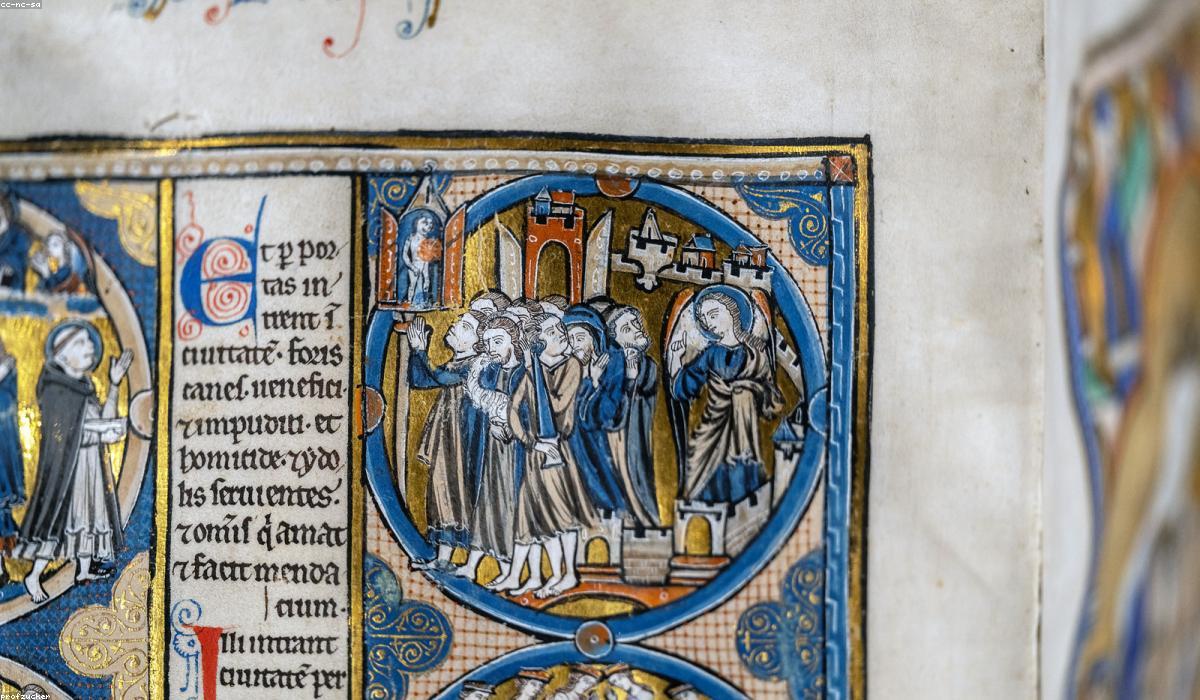 cc-nc-sa
Et ꝑ por
tas in
trent ī
ciuitatē. foris
canes. uenefici.
⁊ impudici. et
homicide. ⁊ ydo
lis seruientes.
⁊ omīs q̄ amat
⁊ facit menda
cium.
Illi intrant
ciuitatē per
profzucker